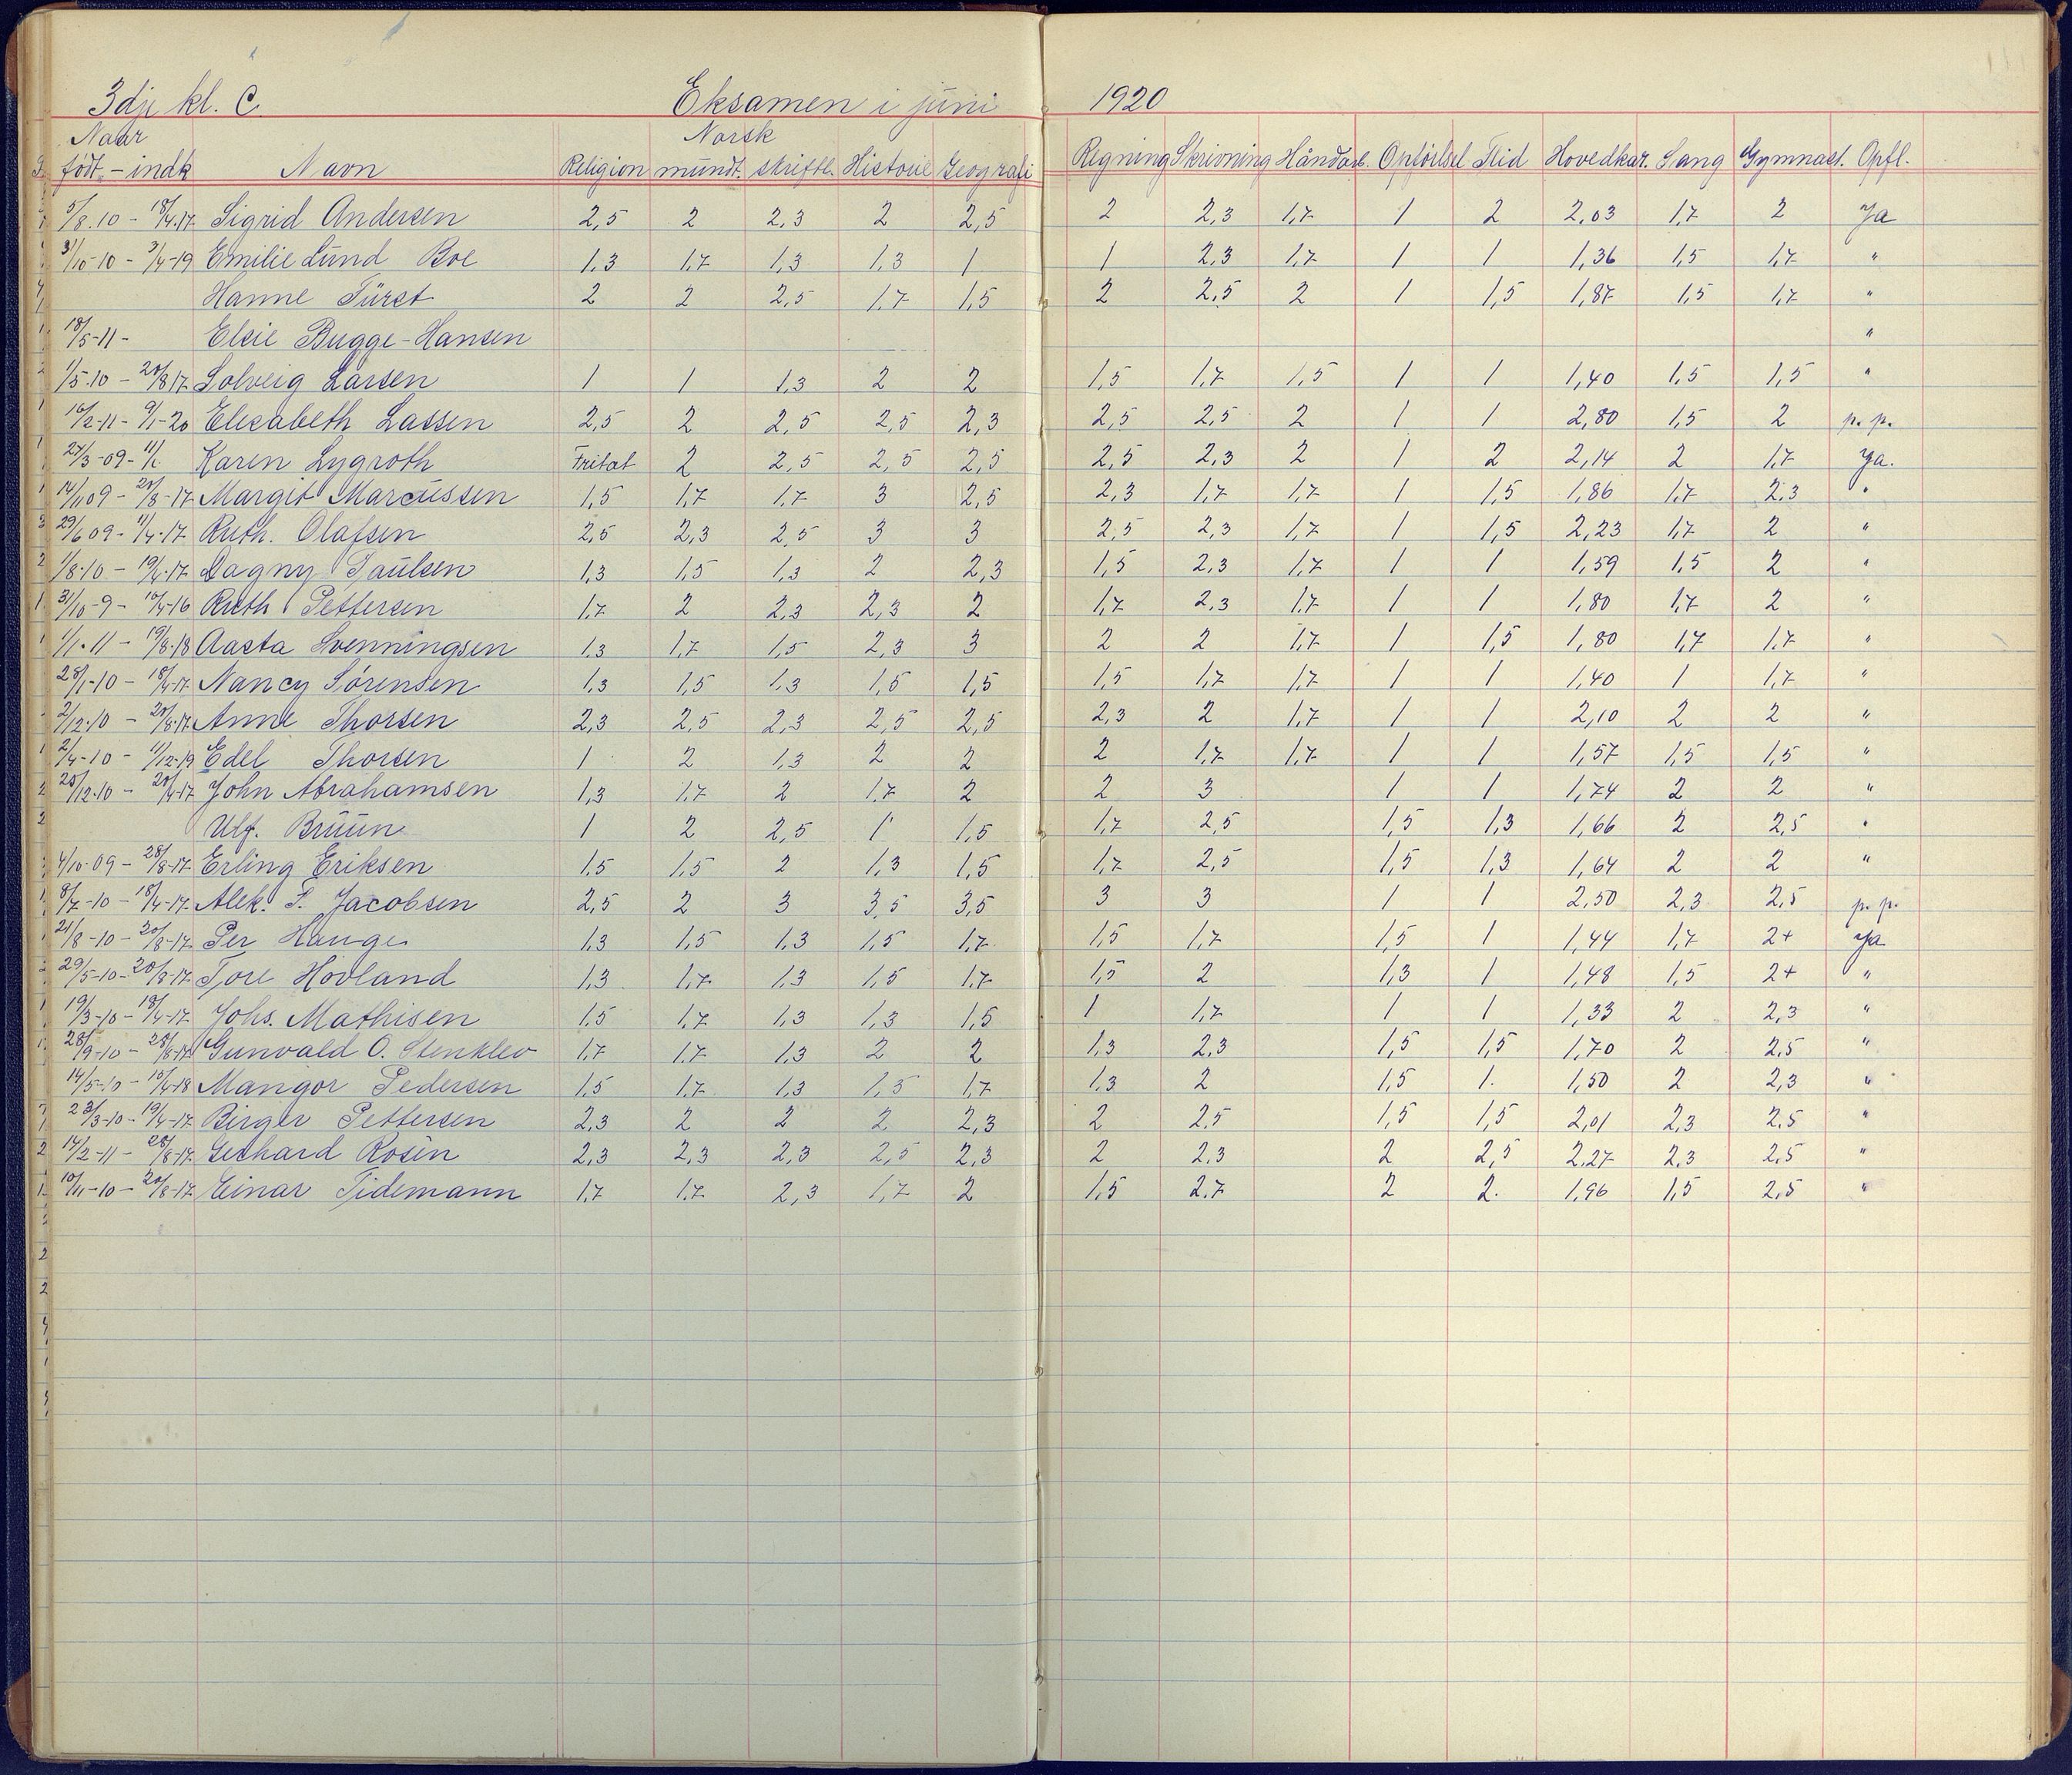 3dje kl. C. Eksamen i juni 1920
Naar Norsk
født. - indk Navn Religion mundt. skriftl. Historie Geografi Regning Skrivning Håndarb. Opførlsel Flid Hovedkar. Sang Gymnast. Opfl.
5/8.10 - 18/4.17 Sigrid Andersen 2,5 2 2,3 2 2,5 2 2,3 1,7 1 2 2,03 1,7 2 Ja
31/10-10 - 3/4-19 Emilie Lund Boe 1,3 1,7 1,3 1,3 1 1 2,3 1,7 1 1 1,36 1,5 1,7 "
Hanne Fürst 2 2 2,5 1,7 1,5 2 2,5 2 1 1,5 1,87 1,5 1,7 "
18/5-11 - Elsie Bugge-Hansen "
1/5.10 - 20/8 17 Solveig Larsen 1 1 1,3 2 2 1,5 1,7 1,5 1 1 1,40 1,5 1,5 "
16/2-11 - 9/1-20 Elisabeth Lassen 2,5 2 2,5 2,5 2,3 2,5 2,5 2 1 1 2,80 1,5 2 p.p.
27/3-09- Karen Lygroth Fritat 2 2,5 2,5 2,5 2,5 2,3 2 1 2 2,14 2 1,7 Ja.
14/11 09 - 20/8-17 Margit Marcussen 1,5 1,7 1,7 3 2,5 2,3 1,7 1,7 1 1,5 1,86 1,7 2,3 "
29/6 09 - 11/4-17 Ruth. Olafsen 2,5 2,3 2,5 3 3 2,5 2,3 1,7 1 1,5 2,23 1,7 2 "
1/8-10 - 19/4-17 Dagny Paulsen 1,3 1,5 1,3 2 2,3 1,5 2,3 1,7 1 1 1,59 1,5 2 "
31/10-9 - 10/4-16 Ruth Pettersen 1,7 2 2,3 2,3 2 1,7 2,3 1,7 1 1 1,80 1,7 2 "
1/1.11 - 19/8-18 Aasta Svenningsen 1,3 1,7 1,5 2,3 3 2 2 1,7 1 1,5 1,80 1,7 1,7 "
28/1-10 - 18/4-17 Nancy Sørensen 1,3 1,5 1,3 1,5 1,5 1,5 1,7 1,7 1 1 1,40 1 1,7 "
2/12.10 - 20/8-17 Anne Thorsen 2,3 2,5 2,3 2,5 2,5 2,3 2 1,7 1 1 2,10 2 2 "
2/4-10 - 11/12-19 Edel Thorsen 1 2 1,3 2 2 2 1,7 1,7 1 1 1,57 1,5 1,5 "
25/12.10 - 20/4-17 John Abrahamsen 1,3 1,7 2 1,7 2 2 3 1 1 1,74 2 2 "
Ulf. Bruun 1 2 2,5 1 1,5 1,7 2,5 1,5 1,3 1,66 2 2,5 "
4/10-09 - 28/8-17 Erling Eriksen 1,5 1,5 2 1,3 1,5 1,7 2,5 1,5 1,3 1,64 2 2 "
8/7-10 - 18/4-17 Alek. S. Jacobsen 2,5 2 3 3,5 3,5 3 3 1 1 2,50 2,3 2,5 p.p.
21/8-10 - 20/8-17 Per Hauge 1,3 1,5 1,3 1,5 1,7 1,5 1,7 1,5 1 1,44 1,7 2+ Ja
29/5-10 - 20/8-17 Tore Hovland 1,3 1,7 1,3 1,5 1,7 1,5 2 1,3 1 1,48 1,5 2+ "
19/3-10 - 18/4-17 Johs. Mathisen 1,5 1,7 1,3 1,3 1,5 1 1,7 1 1 1,33 2 2,3 "
28/9-10 - 28/8-17 Gunvald O. Stenklev 1,7 1,7 1,3 2 2 1,3 2,3 1,5 1,5 1,70 2 2,5 "
14/5-10 - 10/4-18 Mangor Pedersen 1,5 1,7 1,3 1,5 1,7 1,3 2 1,5 1. 1,50 2 2,3 "
23/3-10 - 19/4-17 Birger Pettersen 2,3 2 2 2 2,3 2 2,5 1,5 1,5 2,01 2,3 2,5 "
14/2-11 - 28/8-17 Gerhard Rosèn 2,3 2,3 2,3 2,5 2,3 2 2,3 2 2,5 2,27 2,3 2,5 "
10/11-10 - 20/8-17 Einar Tidemann 1,7 1,7 2,3 1,7 2 1,5 2,7 2 2. 1,96 1,5 2,5 "